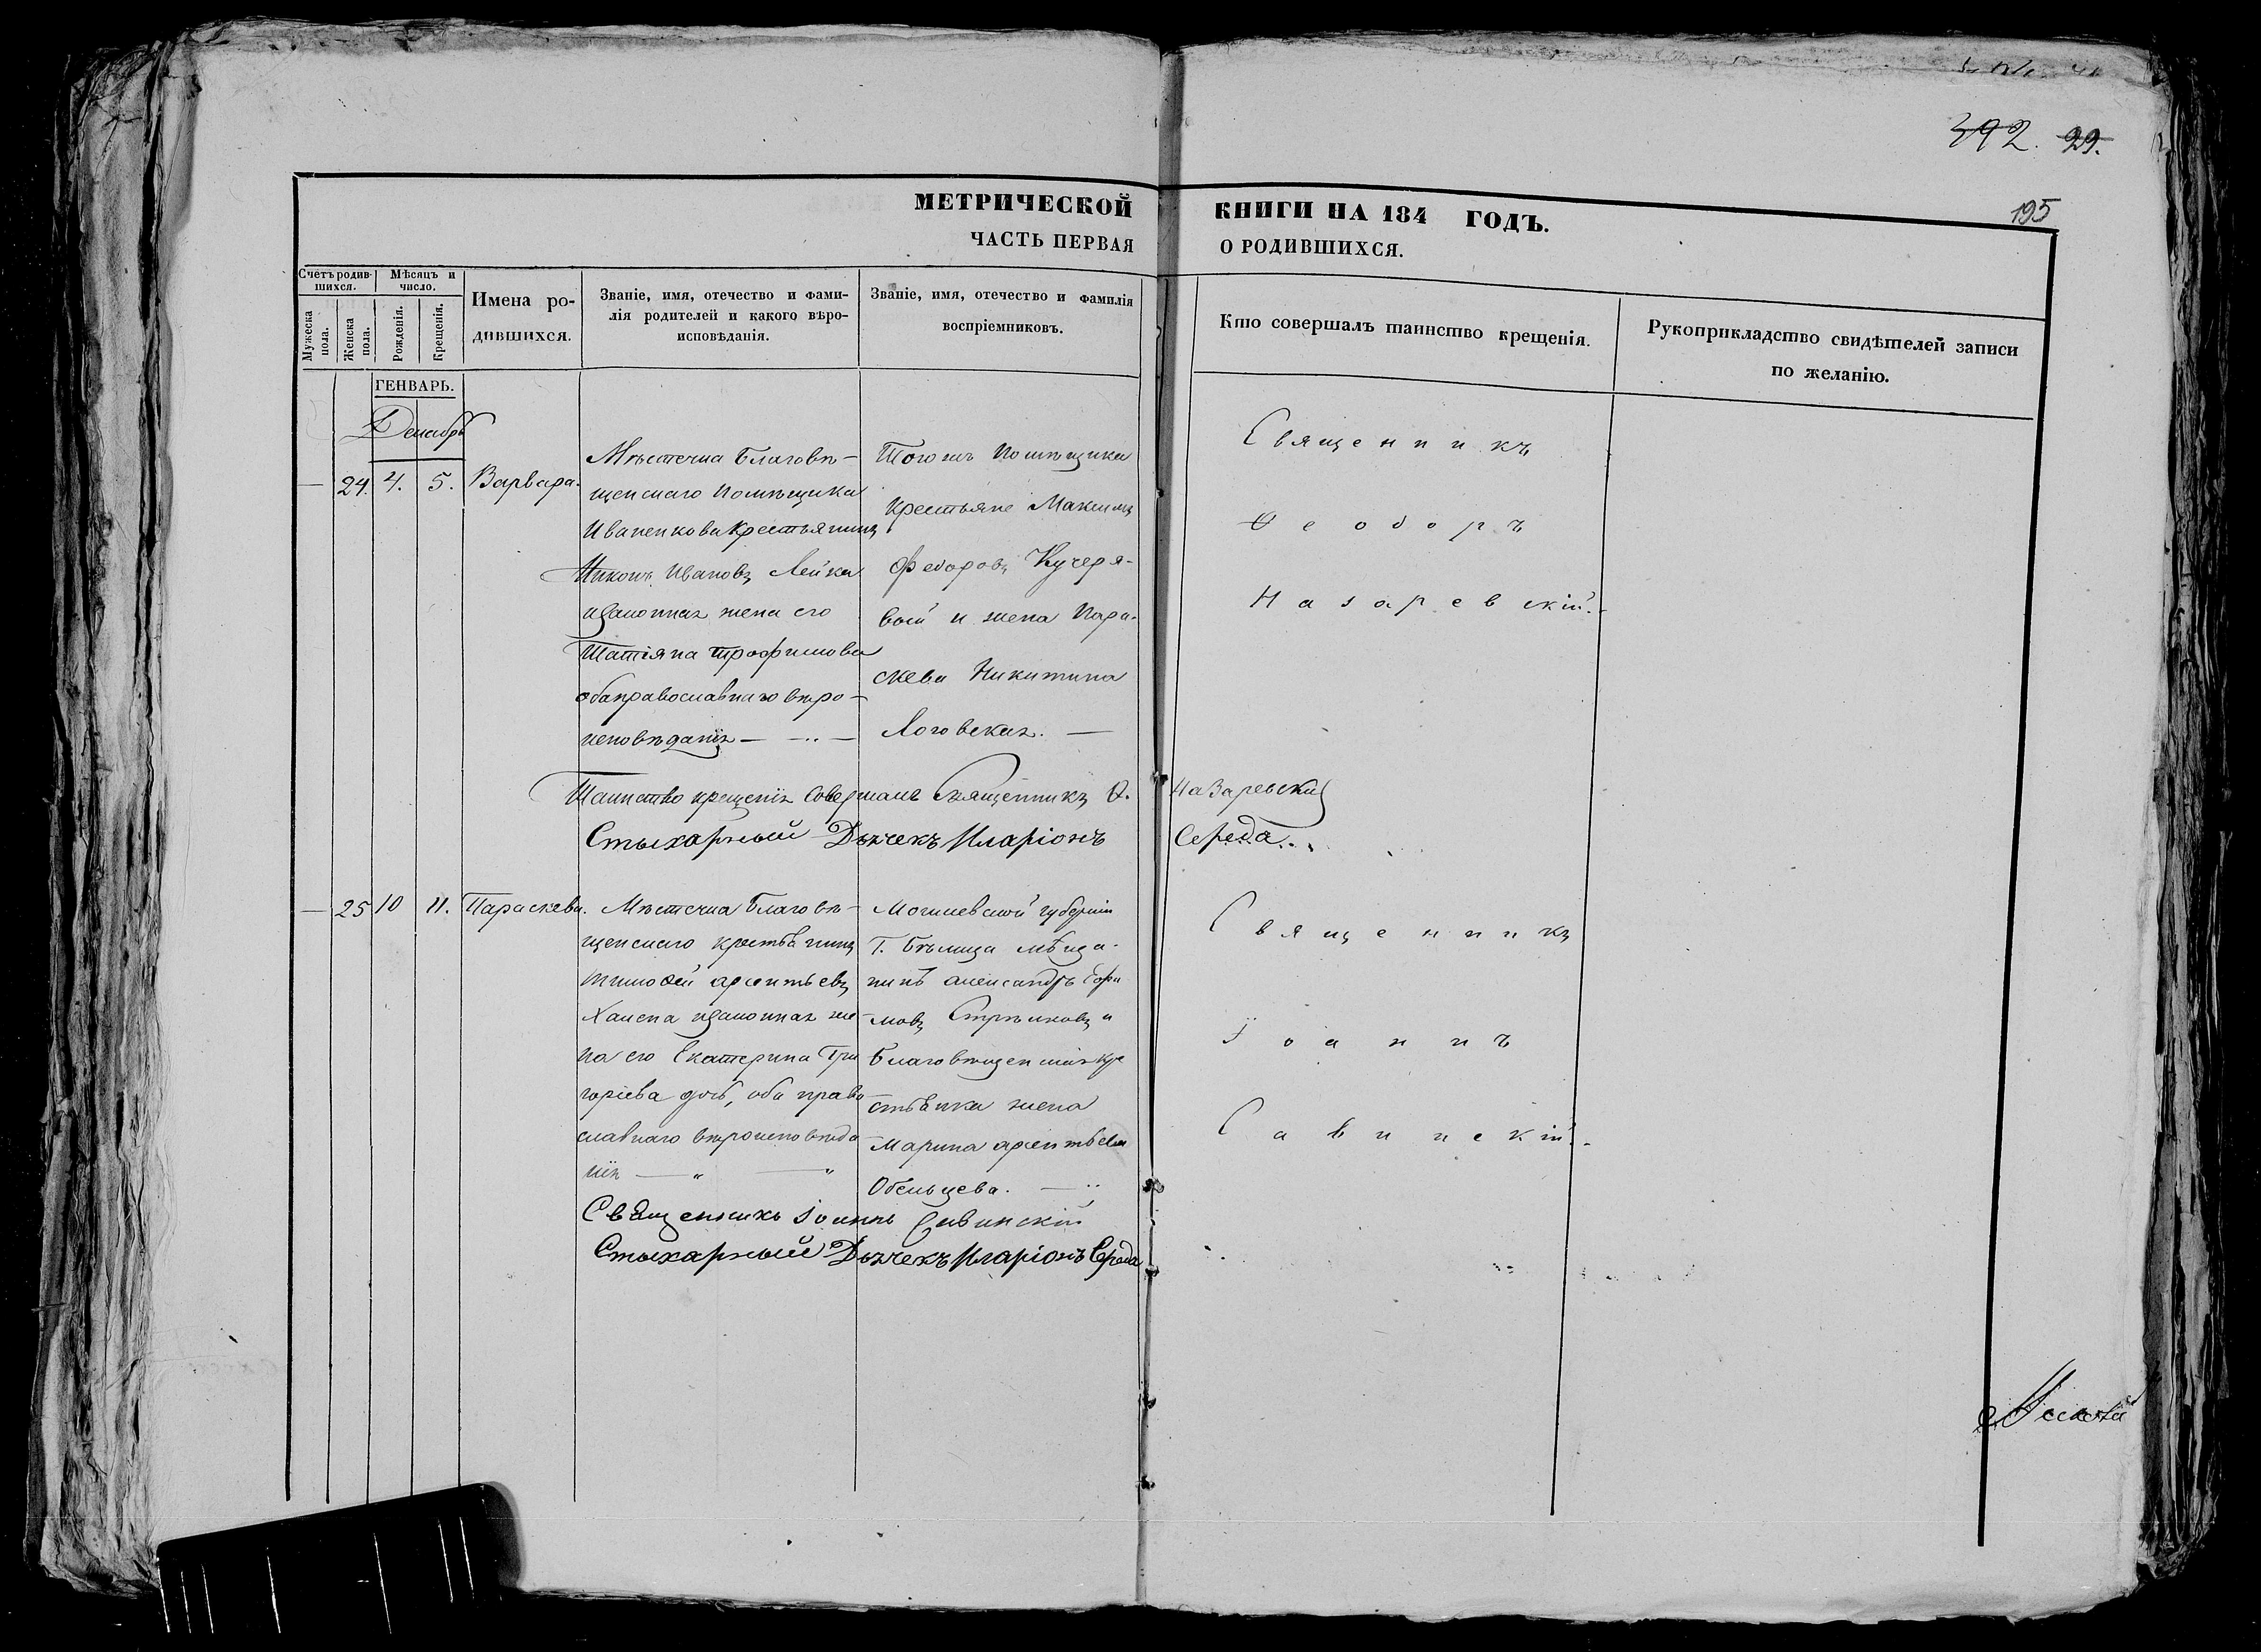 392. 29.
195
МЕТРИЧЕСКОЙ КНИГИ НА 184 ГОДЪ.
ЧАСТЬ ПЕРВАЯ О РОДИВШИХСЯ.
Счетъ родив-
шихся.
Мѣсяцъ и
число.
Мужеска
пола.
Женска
пола.
Рожденія.
Крещенія.
Имена ро-
дившихся.
Званіе, имя, отечество и фами-
лія родителей и какого вѣро-
исповѣданія.
Званіе, имя, отечество и фамилія
воспріемниковъ.
Кто совершалъ таинство крещенія.
Рукоприкладство свидѣтелей записи
по желанію.
ГЕНВАРЬ.
Декабрь
— 24. 4. 5. Варвара.
Мѣстечка Благовѣ-
щенскаго помѣщика
Иваненкова крестьянинъ
Никонъ Ивановъ Лейка
и законная жена его
Татіяна Трофимова
оба православнаго вѣро-
исповѣданія —
Тогожъ помѣщика
крестьяне Максимъ
Федоровъ Кучеря-
вой и жена Пара-
скева Никитина
Логовская. —
Священникъ
Ѳеодоръ
Назаревскій.
Таинство крещенія совершалъ Священникъ Ѳ. Назаревскій
Стыхарный Дьячекъ Иларіонъ Середа
— 25 10 11. Параскева.
Мѣстечка Благовѣ-
щенскаго крестьянинъ
Тимофей
и законная же-
на его Екатерина Гри
горіева дочь, оба право
славнаго вѣроисповѣда
нія —
Могилевской губерніи
Г. Бѣлица мѣща-
нинъ Александръ Ефи
мовъ Стрѣлковъ и
Благовѣщенская кре
стьянка жена
Марина
Обельцева. —
Священникъ
Іоаннъ
Савинскій.
Священникъ Іоаннъ Савинскій
Стыхарный Дьячекъ Иларіонъ Середа